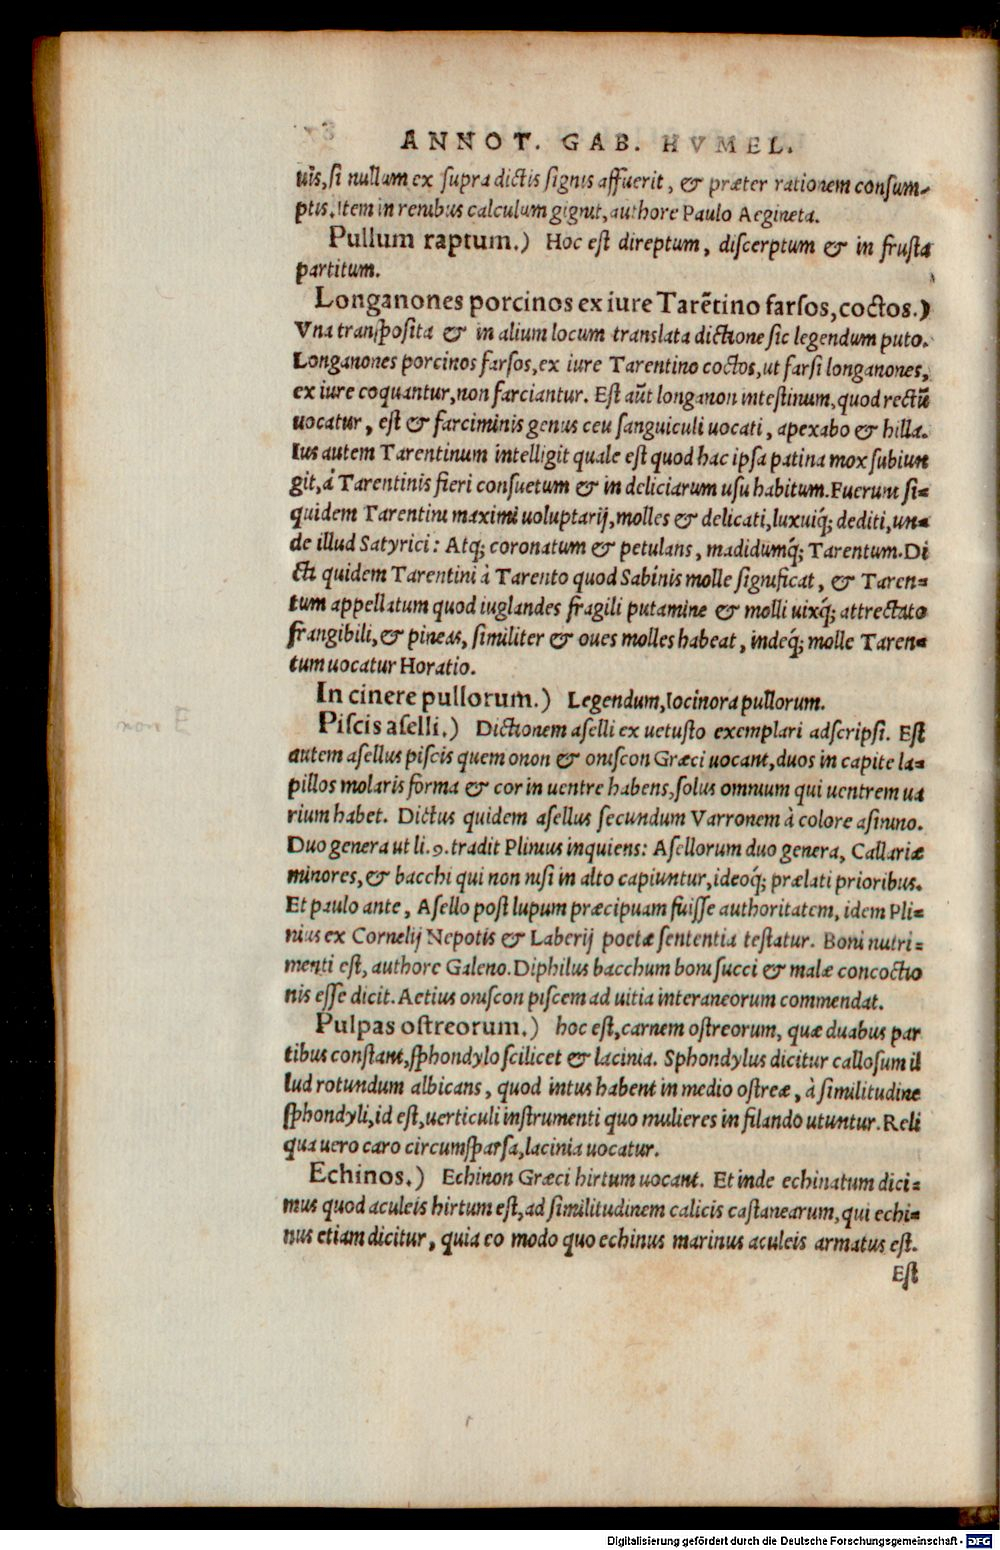 ANNOT. GAB. HVMEL.
uis, si nullum ex supra dictis signis affuerit, & præter rationem consum-
ptis. Item in renibus calculum gignit, authore Paulo Aegineta.
Pullum raptum.) Hoc est direptum, discerptum & in frusta
partitum.
Longanones porcinos ex iure Tarẽtino farsos, coctos.)
Vna transposita & in alium locum translata dictione sic legendum puto.
Longanones porcinos farsos, ex iure Tarentino coctos, ut farsi longanones,
ex iure coquantur, non farciantur. Est aũt longanon intestinum, quod rectũ
uocatur, est & farciminis genus ceu sanguiculi uocati, apexabo & hilla.
Ius autem Tarentinum intelligit quale est quod hac ipsa patina mox subiun
git, á Tarentinis fieri consuetum & in deliciarum usu habitum. Fuerunt si-
quidem Tarentini maximi uoluptarij, molles & delicati, luxuiq́; dediti, un-
de illud Satyrici: Atq; coronatum & petulans, madidumq́; Tarentum. Di
cti quidem Tarentini à Tarento quod Sabinis molle significat, & Taren-
tum appellatum quod iuglandes fragili putamine & molli uixq́; attrectato
frangibili, & pineas, similiter & oues molles habeat, indeq́; molle Taren-
tum uocatur Horatio.
In cinere pullorum.) Legendum, Iocinora pullorum.
Piscis aselli.) Dictionem aselli ex uetusto exemplari adscripsi. Est
autem asellus piscis quem onon & oniscon Græci uocant, duos in capite la-
pillos molaris forma & cor in uentre habens, solus omnium qui uentrem ua
rium habet. Dictus quidem asellus secundum Varronem à colore asinino.
Duo genera ut li. 9. tradit Plinius inquiens: Asellorum duo genera, Callariæ
minores, & bacchi qui non nisi in alto capiuntur, ideoq́; prælati prioribus.
Et paulo ante, Asello post lupum præcipuam fuisse authoritatem, idem Pli-
nius ex Cornelij Nepotis & Laberij poetæ sententia testatur. Boni nutri-
menti est, authore Galeno. Diphilus bacchum boni succi & malæ concoctio
nis esse dicit. Aetius oniscon piscem ad uitia interaneorum commendat.
Pulpas ostreorum.) hoc est, carnem ostreorum, quæ duabus par
tibus constant, sphondylo scilicet & lacinia. Sphondylus dicitur callosum il
lud rotundum albicans, quod intus habent in medio ostreæ, à similitudine
sphondyli, id est, uerticuli instrumenti quo mulieres in filando utuntur. Reli
qua uero caro circumsparsa, lacinia uocatur.
Echinos.) Echinon Græci hirtum uocant. Et inde echinatum dici-
mus quod aculeis hirtum est, ad similitudinem calicis castanearum, qui echi-
nus etiam dicitur, quia eo modo quo echinus marinus aculeis armatus est.
Est
Digitalisierung gefördert durch die Deutsche Forschungsgemeinschaft - DFG